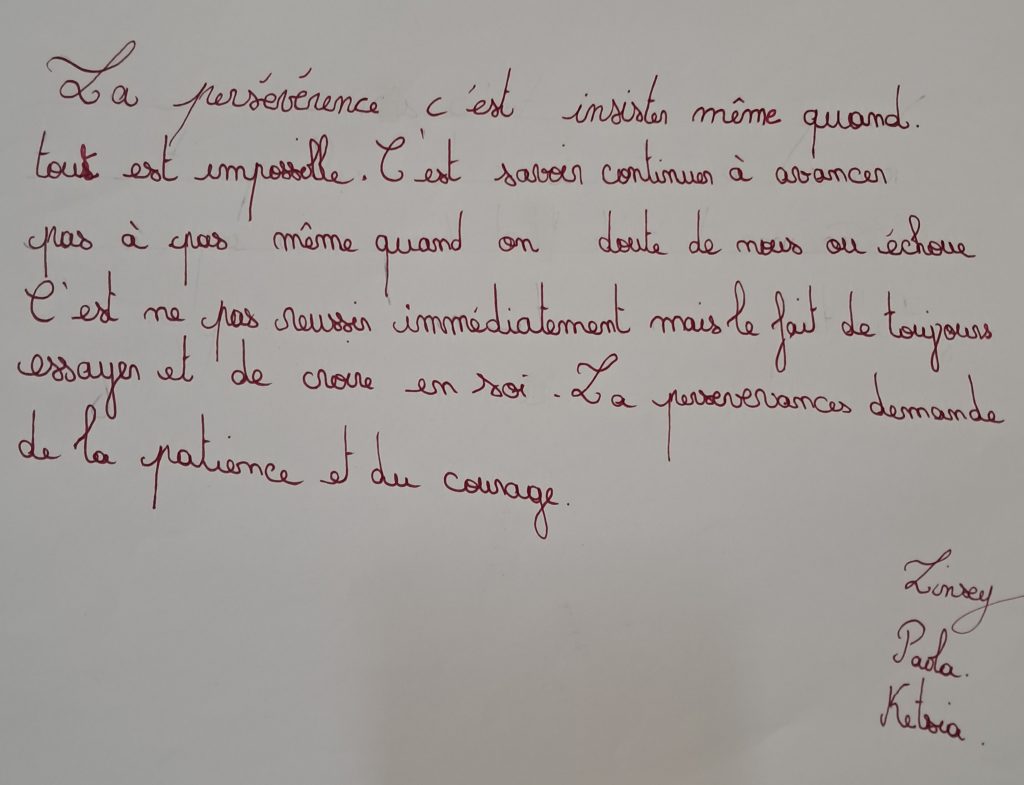 La persévérence c'est insister même quand.
tout est impossible. C'est savoir continuer à avancer
pas à pas même quand on doute de nous ou échoue
C'est ne pas reussir immédiatement mais le fait de toujours
essayer et de croire en soi. La perseverances demande
de la patience et du courage.
Linsey
Paola.
Ketsia.